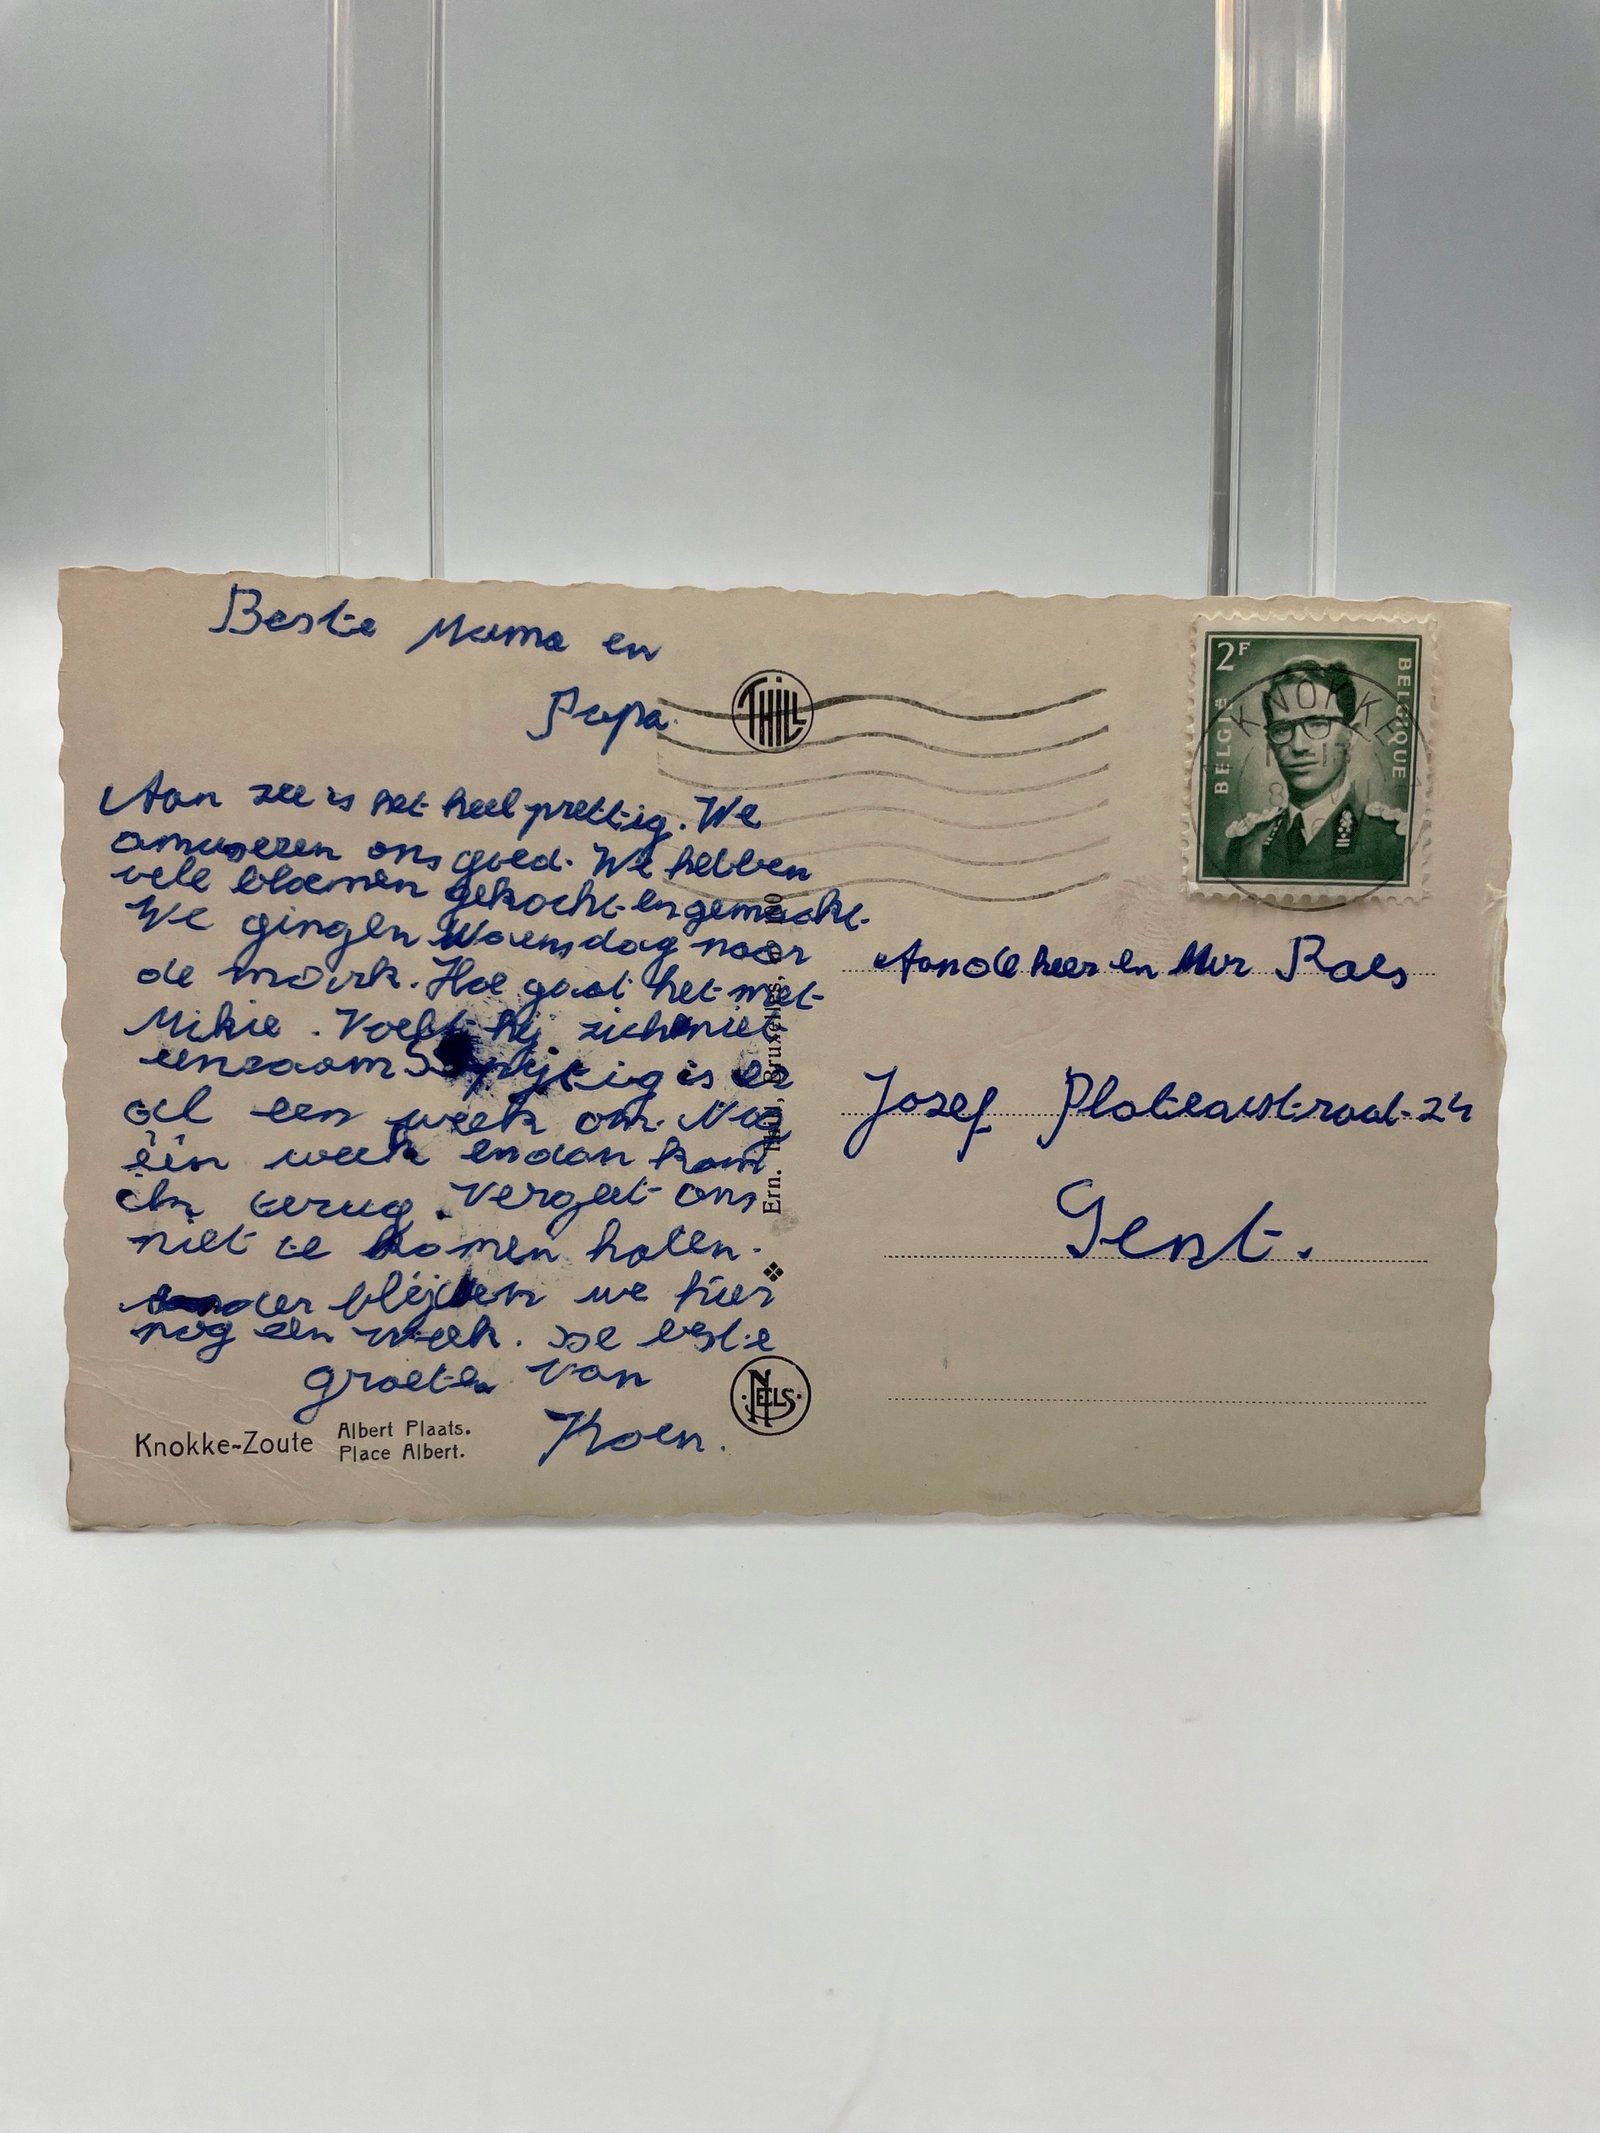 Beste Mama en
Papa.
Aan zee is het heel prettig. We
amuseren ons goed. We hebben
vele bloemen gekocht en gemaakt.
We gingen Woensdag naar
de mark. Hoe gaat het met
Mikie. Voelt hij zich niet
eenzaam is er
al een week om. Nog
één week en dan kom
ik terug. Vergeet ons
niet te komen halen.
Ander blijven we hier
nog een week. De beste
groeten van
Koen.
Knokke-Zoute
Albert Plaats.
Place Albert.
THILL
Ern. Thill, Bruxelles,
NELS
2F
BELGIË
BELGIQUE
KNOKKE
Aan de heer en Mvr Raes
Jozef Plateaustraat 24
Gent.